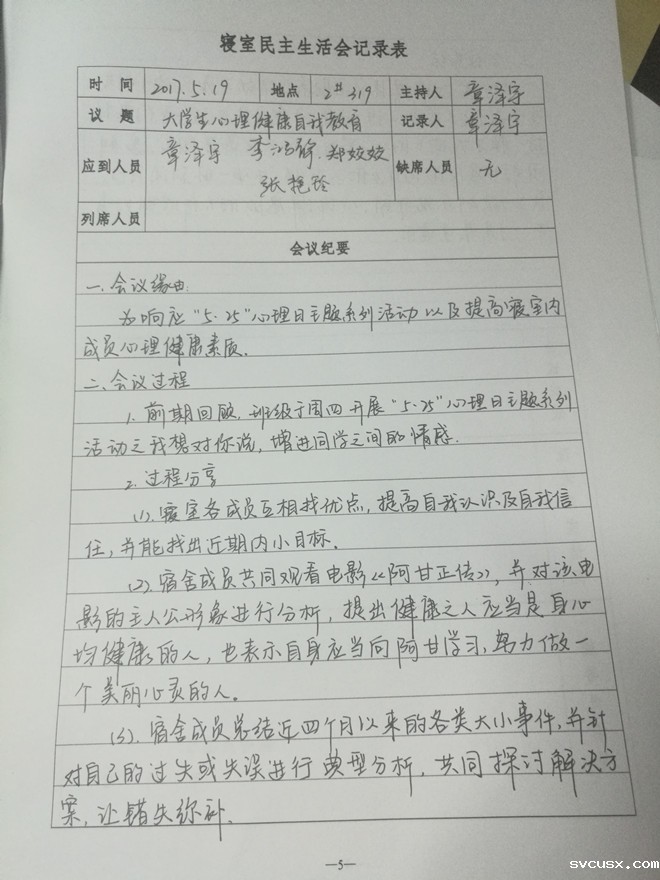 寝室民主生活会记录表
时 间 2017.5.19 地点 2#319 主持人 章泽宇
议 题 大学生心理健康自我教育 记录人 章泽宇
应到人员 章泽宇 李 静 郑姣姣 缺席人员 无
张艳玲
列席人员
会议纪要
一、会议缘由:
为响应“5·25”心理日主题系列活动以及提高寝室内
成员心理健康素质.
二、会议过程
1. 前期回顾. 班级于周四开展“5·25”心理日主题系列
活动之我想对你说, 增进同学之间的情感.
2. 过程分享
(1). 寝室各成员互相找优点, 提高自我认识及自我信
任, 并能找出近期内小目标.
(2). 宿舍成员共同观看电影《阿甘正传》, 并对该电
影的主人公形象进行分析, 提出健康之人应当是身心
均健康的人, 也表示自身应当向阿甘学习, 努力做一
个美丽心灵的人.
(3). 宿舍成员总结近四个月以来的各类大小事件, 并针
对自己的过失或失误进行典型分析, 共同探讨解决方
案, 让错失弥补.
—5—
svcusx.com